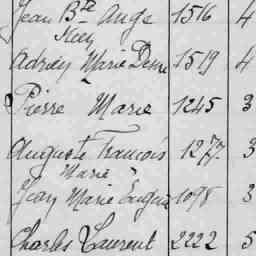 Jean Bte Ange 1516 4
Adrien Marie Désiré 1519 4
Pierre Marie 1245 3
Auguste François 1277 3
Marie
Jean Marie Eugène 1098 3
Charles Laurent 2222 5